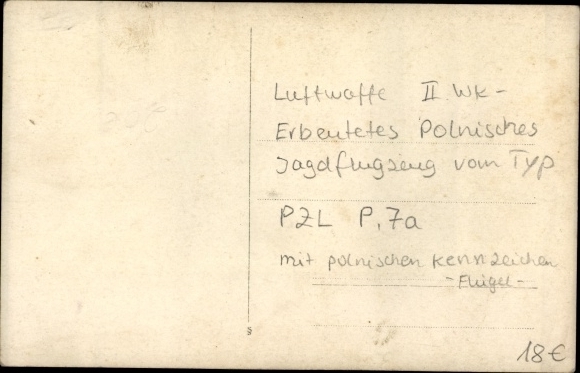 Luftwaffe II. WK-
Erbeutetes Polnisches
Jagdflugzeug vom Typ
PZL P.7a
mit polnischen Kennzeichen
-Flügel-
18€